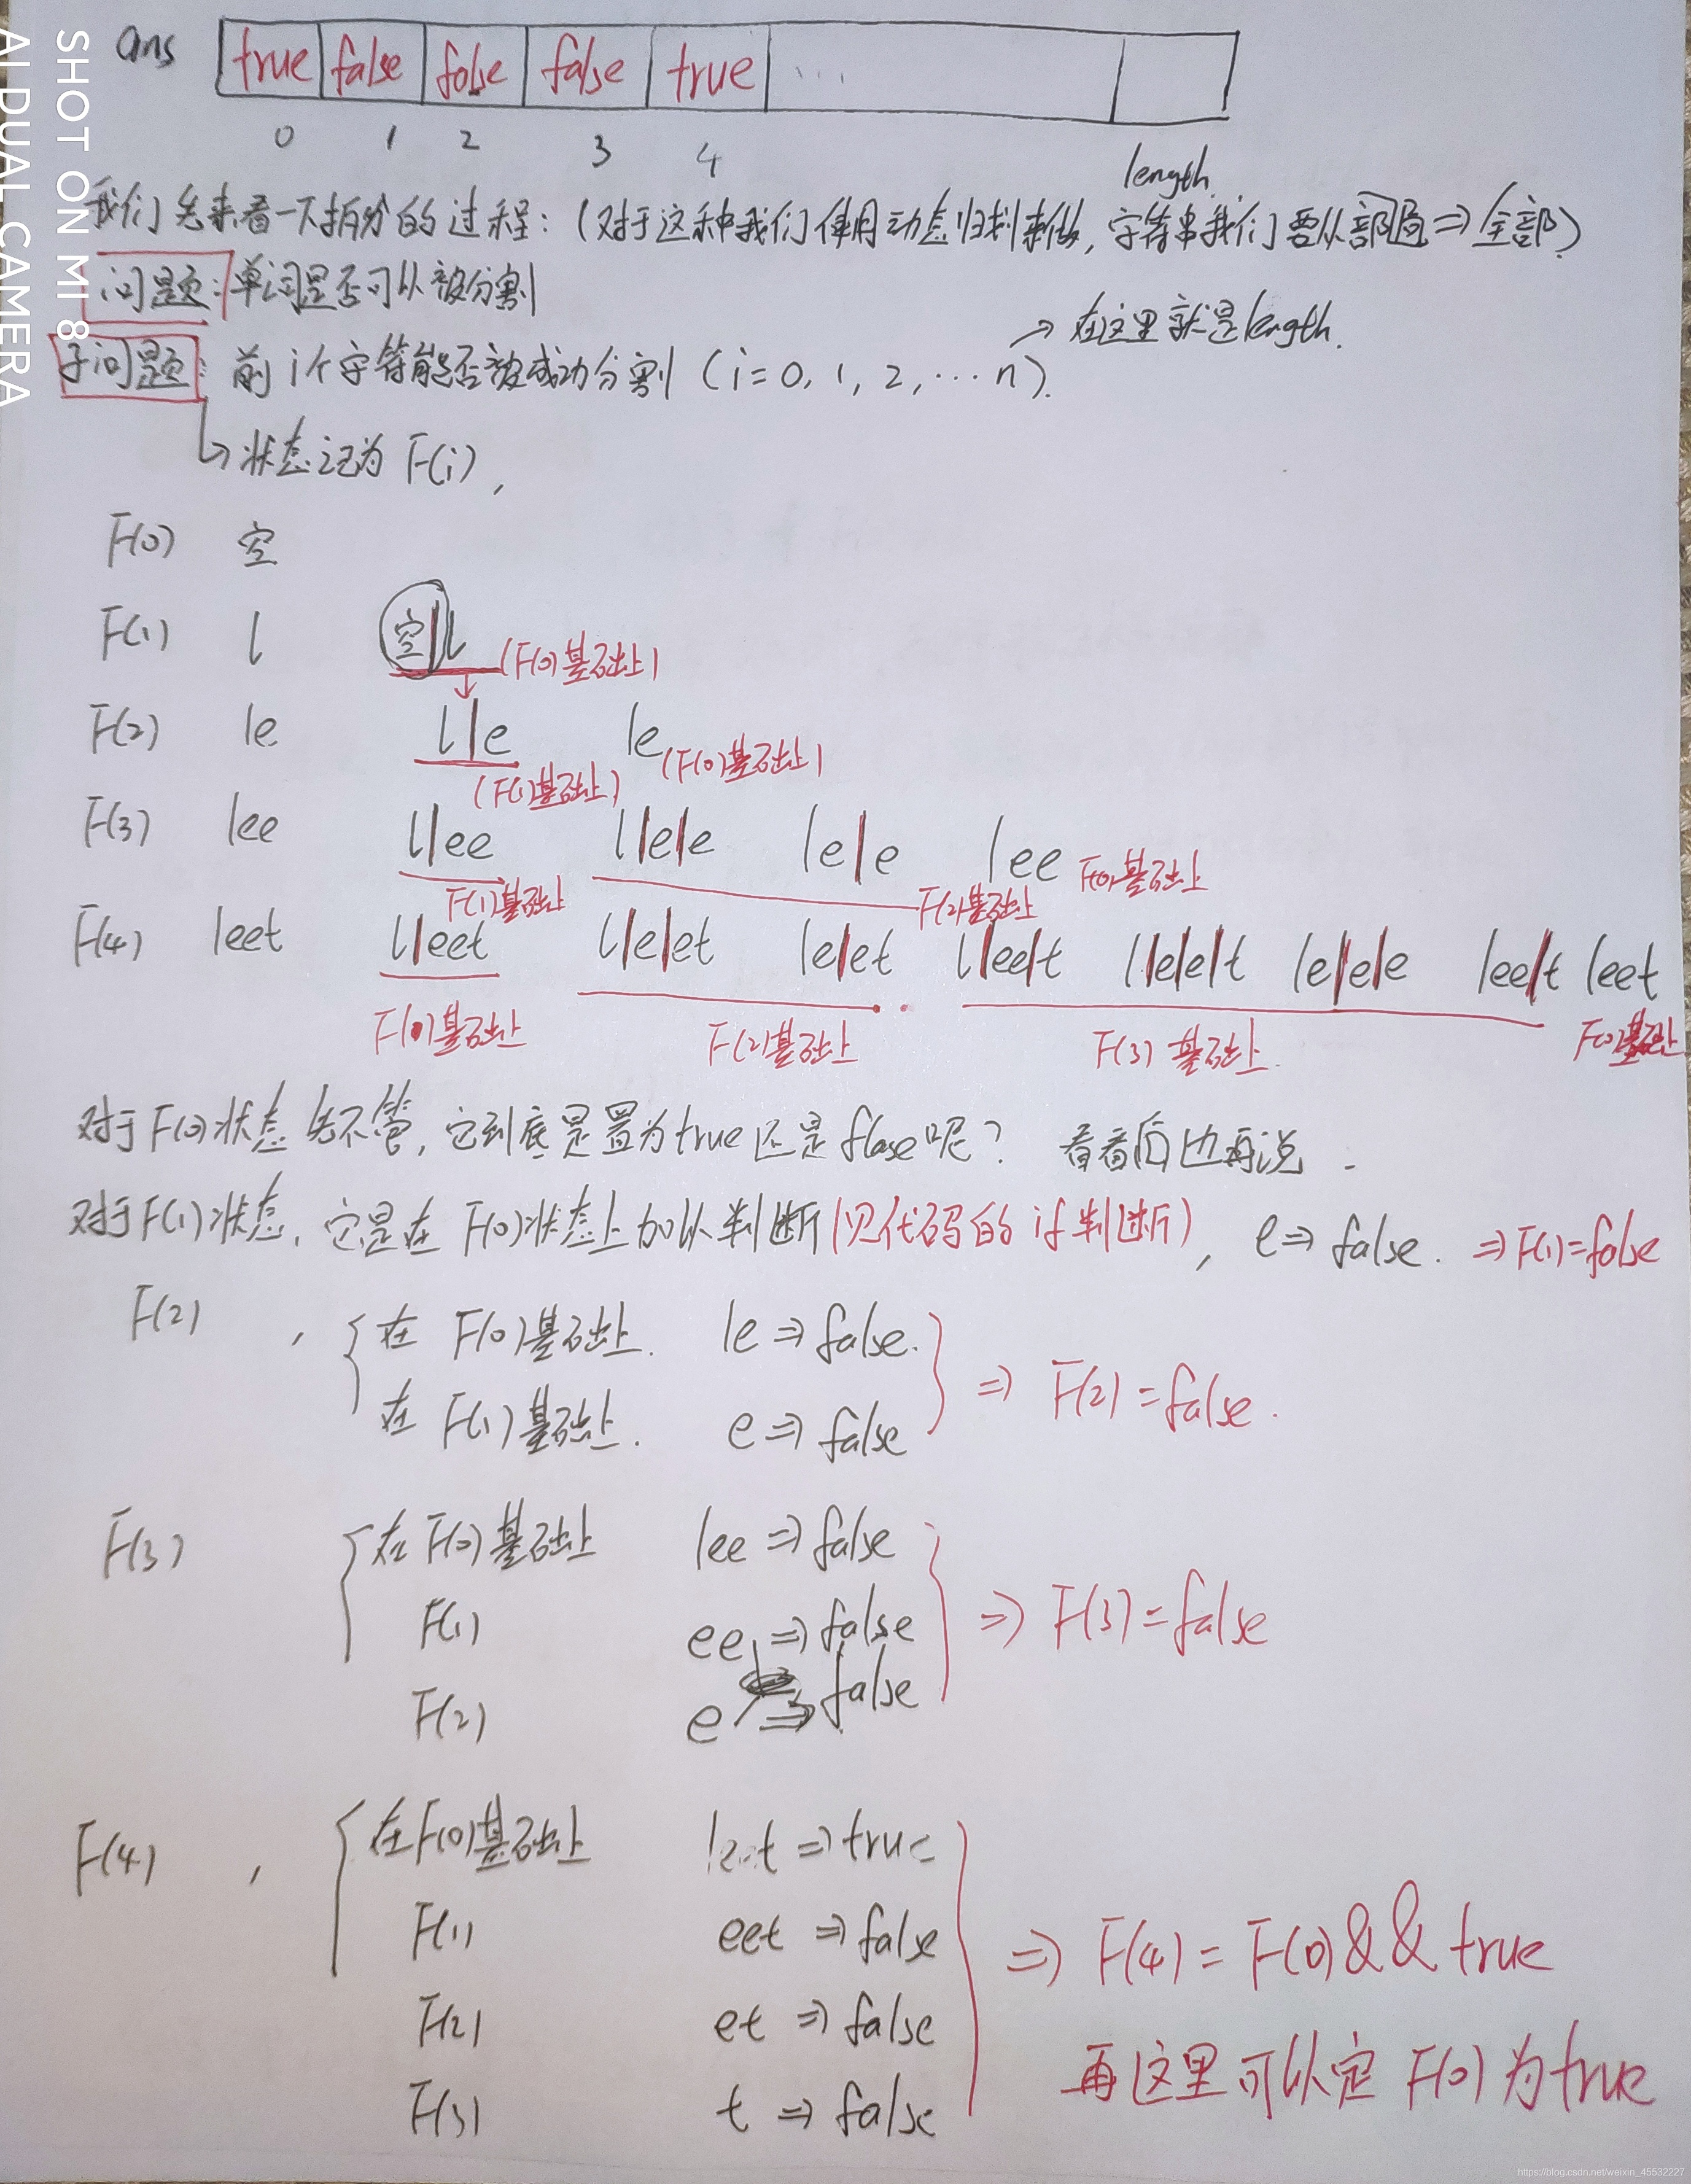 SHOT ON MI 8
AI DUAL CAMERA
ans true false false false true ...
0 1 2 3 4 length
我们先来看一下拆分的过程：(对于这种我们使用动态归划来做，字符串我们要从部分⇒全部)
问题：单词是否可以被分割
→ 在这里就是length.
子问题：前i个字符能否被成功分割 (i=0, 1, 2, ⋯ n).
↳ 状态记为 F(i),
F(0) 空
F(1) l 空|l (F(0)基础上)
F(2) le l|e (F(1)基础上) le (F(0)基础上)
F(3) lee l|ee F(1)基础上 l|e|e le|e F(2)基础上 lee F(0)基础上
F(4) leet l|eet l|e|et le|et l|ee|t l|e|e|t le|e|e lee|t leet
F(1)基础上 F(2)基础上 F(3)基础上 F(0)基础上
对于F(0)状态先不管，它到底是置为true还是flase呢？ 看看后边再说.
对于F(1)状态，它是在F(0)状态上加以判断(见代码的if判断)，l⇒false. ⇒F(1)=false
F(2) , { 在 F(0)基础上. le⇒false.
在 F(1)基础上. e⇒false } ⇒ F(2)=false.
F(3) { 在F(0)基础上 lee⇒false
F(1) ee⇒false } ⇒ F(3)=false
F(2) e⇒false
F(4) , { 在F(0)基础上 leet⇒true
F(1) eet⇒false } ⇒ F(4)=F(0)&&true
F(2) et⇒false
再这里可以定F(0)为true
F(3) t⇒false
https://blog.csdn.net/weixin_45532227